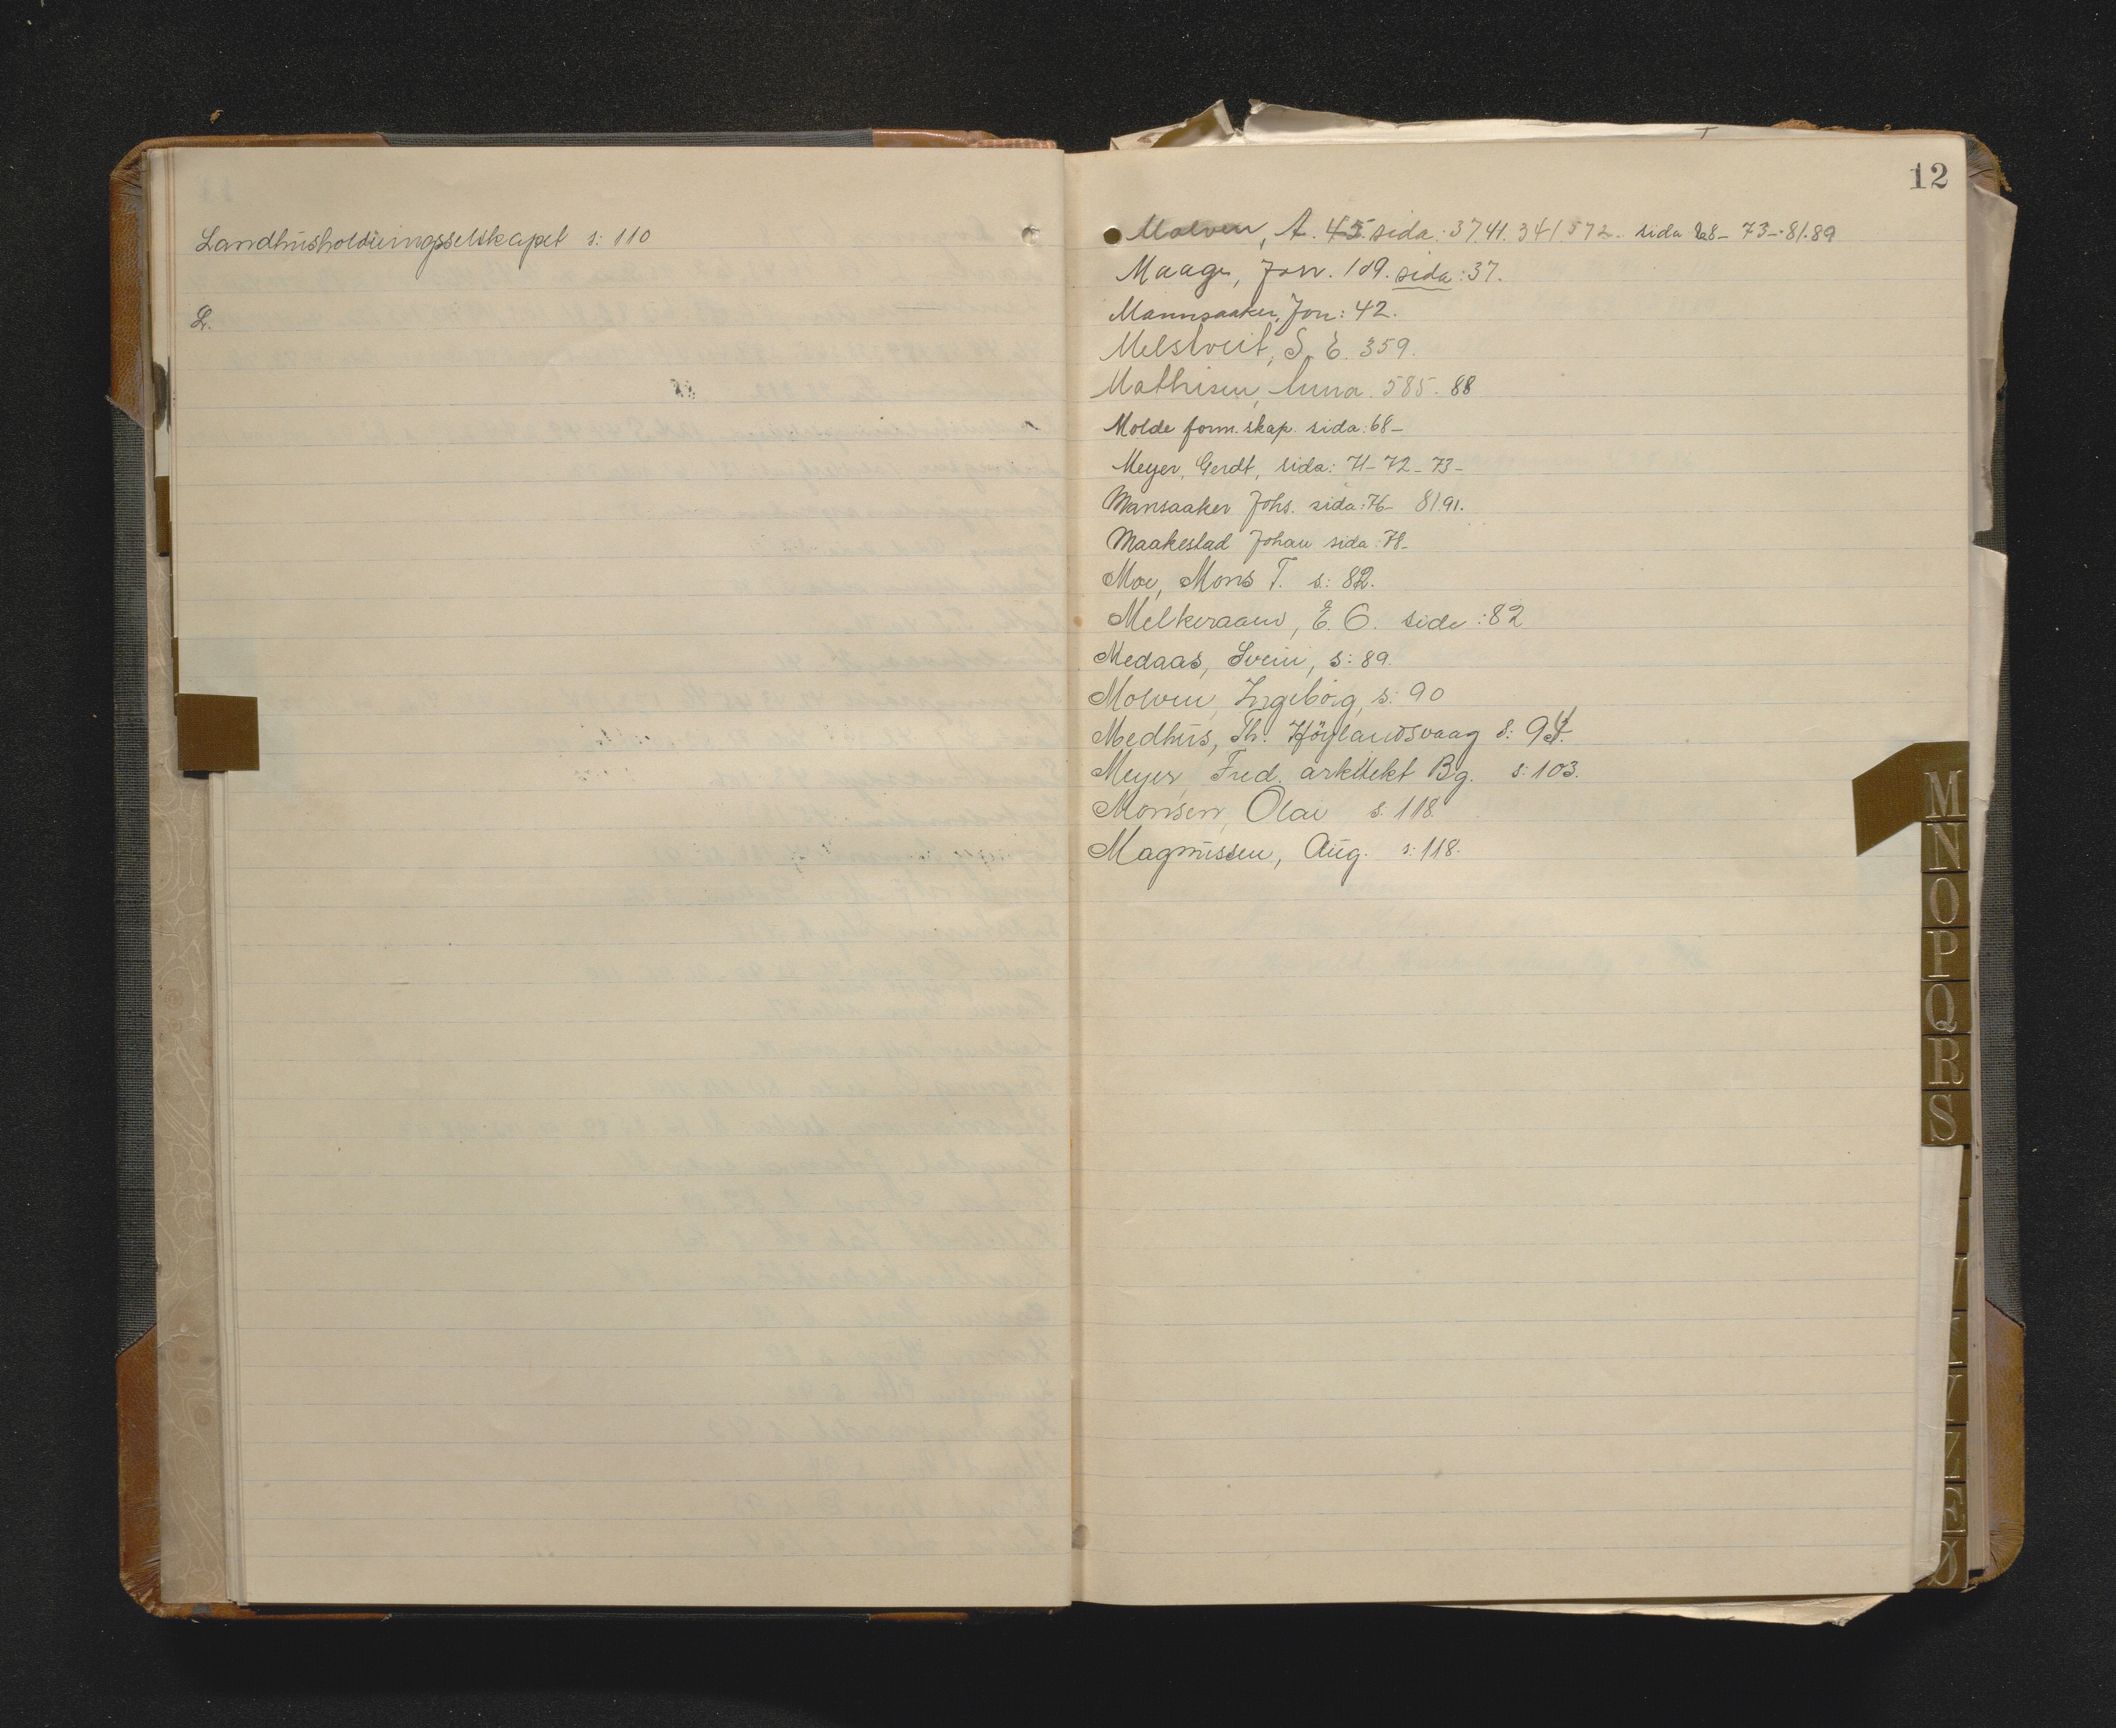 Landhúsholdningsselskapet s: 110
L.
12
Molven, A. 45. sida: 37.41. 341 572. sida 68- 73-.81.89
Maage, Jon. 189. sida: 37.
Mannsaaker, Jon: 42.
Melstveit, S. E. 359.
Mathisen, Anna. 585. 88
Molde form.skap. sida: 68-
Meyer, Gerdt, sida: 71- 72- 73-
Mansaaker Johs. sida: 76- 81.91.
Maakestad Johan sida: 78-
Moe, Mons T. s: 82.
Melkeraaen, E. O. side: 82
Medaas, Svein, s: 89.
Molven, Ingebórg, s: 90
Medhús, Th. Höylandsvaag s: 94.
Meyer, Fred. arkitekt Bg. s: 103.
Monsen, Olai s. 118.
Magnússen, Aúg. s: 118.
M
N
O
P
Q
R
S
V
Z
Æ
Ø